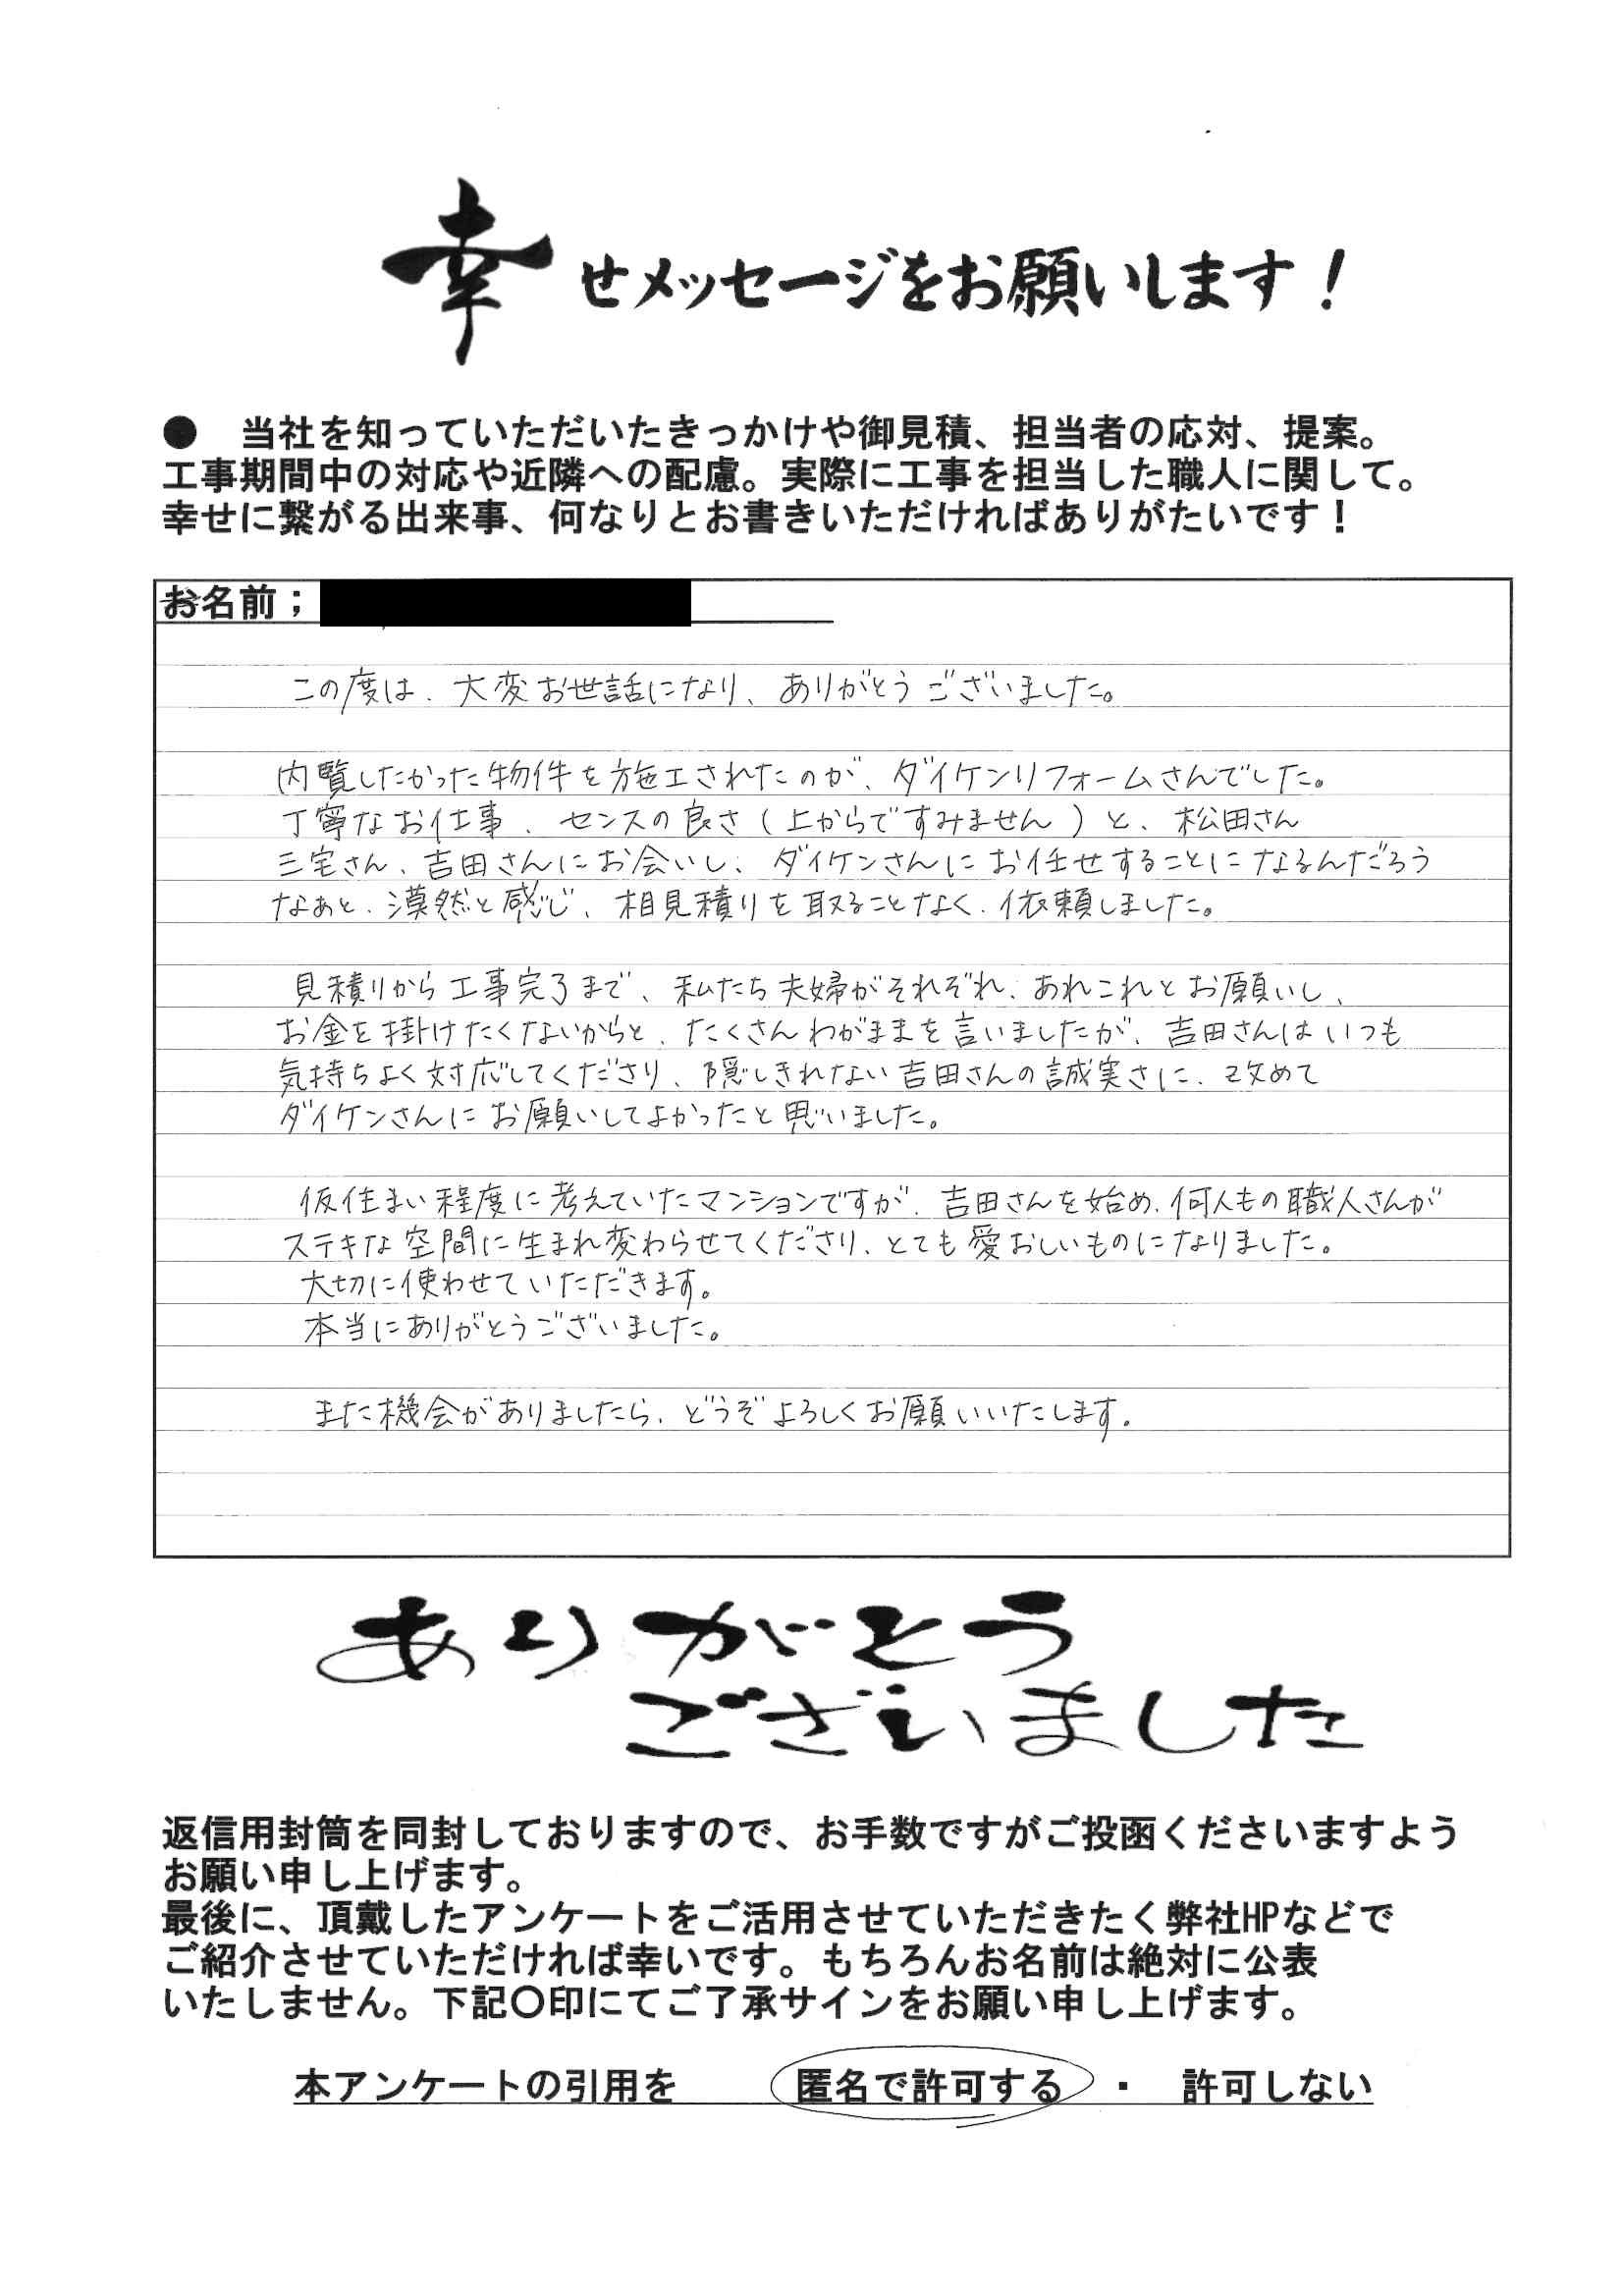 幸せメッセージをお願いします！
●　当社を知っていただいたきっかけや御見積、担当者の応対、提案。
工事期間中の対応や近隣への配慮。実際に工事を担当した職人に関して。
幸せに繋がる出来事、何なりとお書きいただければありがたいです！
お名前；
この度は、大変お世話になり、ありがとうございました。
内覧したかった物件を施工されたのが、ダイケンリフォームさんでした。
丁寧なお仕事、センスの良さ（上からですみません）と、松田さん
三宅さん、吉田さんにお会いし、ダイケンさんにお任せすることになるんだろう
なぁと、漠然と感じ、相見積りを取ることなく、依頼しました。
見積りから工事完了まで、私たち夫婦がそれぞれ、あれこれとお願いし、
お金を掛けたくないからと、たくさんわがままを言いましたが、吉田さんはいつも
気持ちよく対応してくださり、隠しきれない吉田さんの誠実さに、改めて
ダイケンさんにお願いしてよかったと思いました。
仮住まい程度に考えていたマンションですが、吉田さんを始め、何人もの職人さんが
ステキな空間に生まれ変わらせてくださり、とても愛おしいものになりました。
大切に使わせていただきます。
本当にありがとうございました。
また機会がありましたら、どうぞよろしくお願いいたします。
ありがとう
ございました
返信用封筒を同封しておりますので、お手数ですがご投函くださいますよう
お願い申し上げます。
最後に、頂戴したアンケートをご活用させていただきたく弊社HPなどで
ご紹介させていただければ幸いです。もちろんお名前は絶対に公表
いたしません。下記〇印にてご了承サインをお願い申し上げます。
本アンケートの引用を　匿名で許可する　・　許可しない